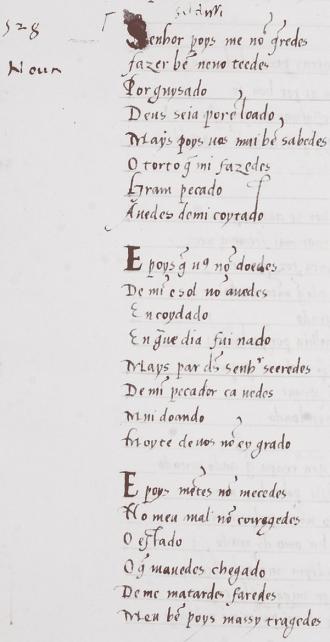 528
Noun
Senhor poys me nõ q̃redes
fazer bẽ neno teedes
Por guysado
Deus seia porẽ loado
Mays poys uos mui bẽ sabedes
O torto q̃ mi fazedes
Gram pecado
Auedes demi coytado
E poys q̃ uꝯ nõ doedes
De mĩ e sol nõ auedes
En coydado
En q̃ue dia fui nado
Mays par ds̃ senhʳ seeredes
De mĩ pecador ca uedes
Mui doando
Moyte de uos nõ ey grado
E poys mẽtes nõ metedes
No meu mal nõ corregedes
O estado
O q̃ mauedes chegado
De me matardes faredes
Meu bẽ poys massy tragedes